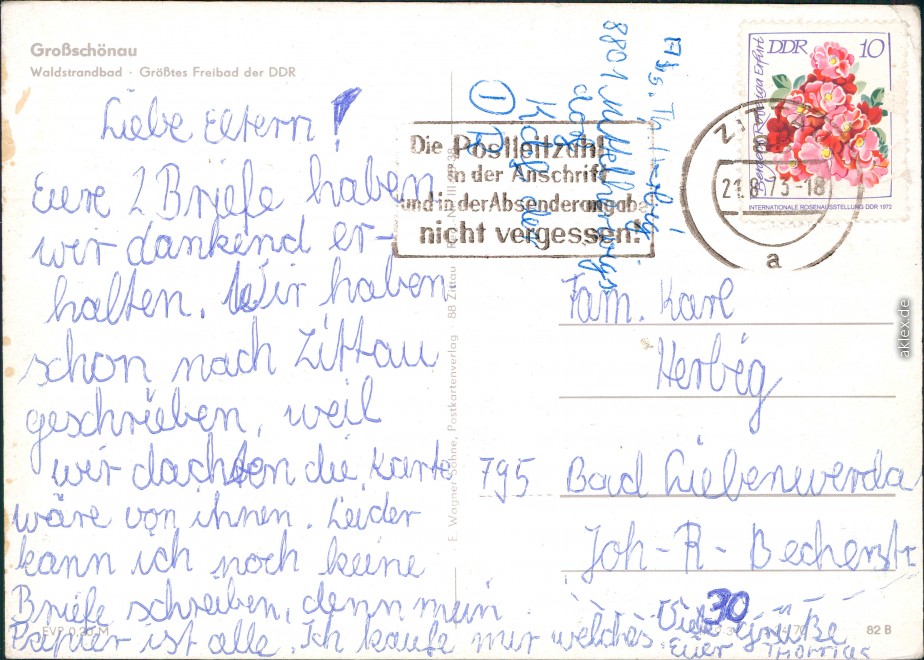 Großschönau
Waldstrandbad · Größtes Freibad der DDR
Liebe Eltern!
Eure 2 Briefe haben
wir dankend er-
halten. Wir haben
schon nach Zittau
geschrieben, weil
wir dachten die Karte
wäre von ihnen. Leider
kann ich noch keine
Briefe schreiben, denn mein
Papier ist alle. Ich kaufe mir welches.
Viele Grüße
Euer Thomas
EVP 0,20 M
E. Wagner Söhne, Postkartenverlag · 88 Zittau
Abs. Th. Herbig
8801
Die Postleitzahl
in der Anschrift
und in der Absenderangabe
nicht vergessen!
DDR 10
INTERNATIONALE ROSENAUSSTELLUNG DDR 1972
21.8.73-18
a
Fam. Karl
Herbig
795 Bad Liebenwerda
Joh-R-Becherstr
30
82 B
aklex.de